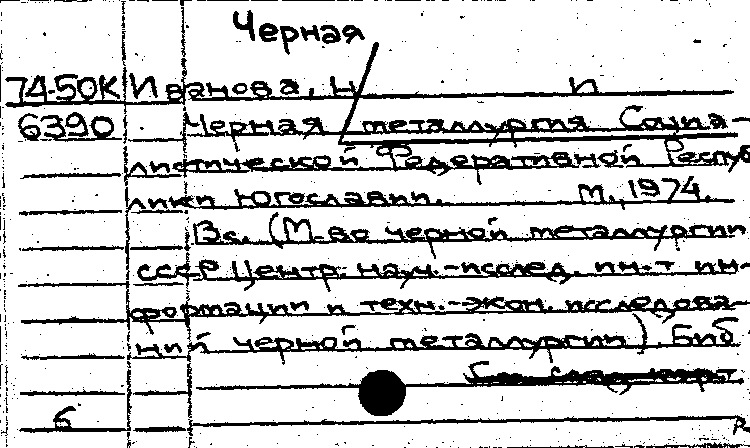 Черная
74-50К Иванова, Н И
6390 Черная металлургия Социа-
листической Федеративной Респуб
лики Югославии. М., 1974.
13 с. (М-во черной металлургии
СССР Центр. науч.-исслед. ин-т ин-
формации и техн.-экон. исследова-
ний черной металлургии). Биб
б